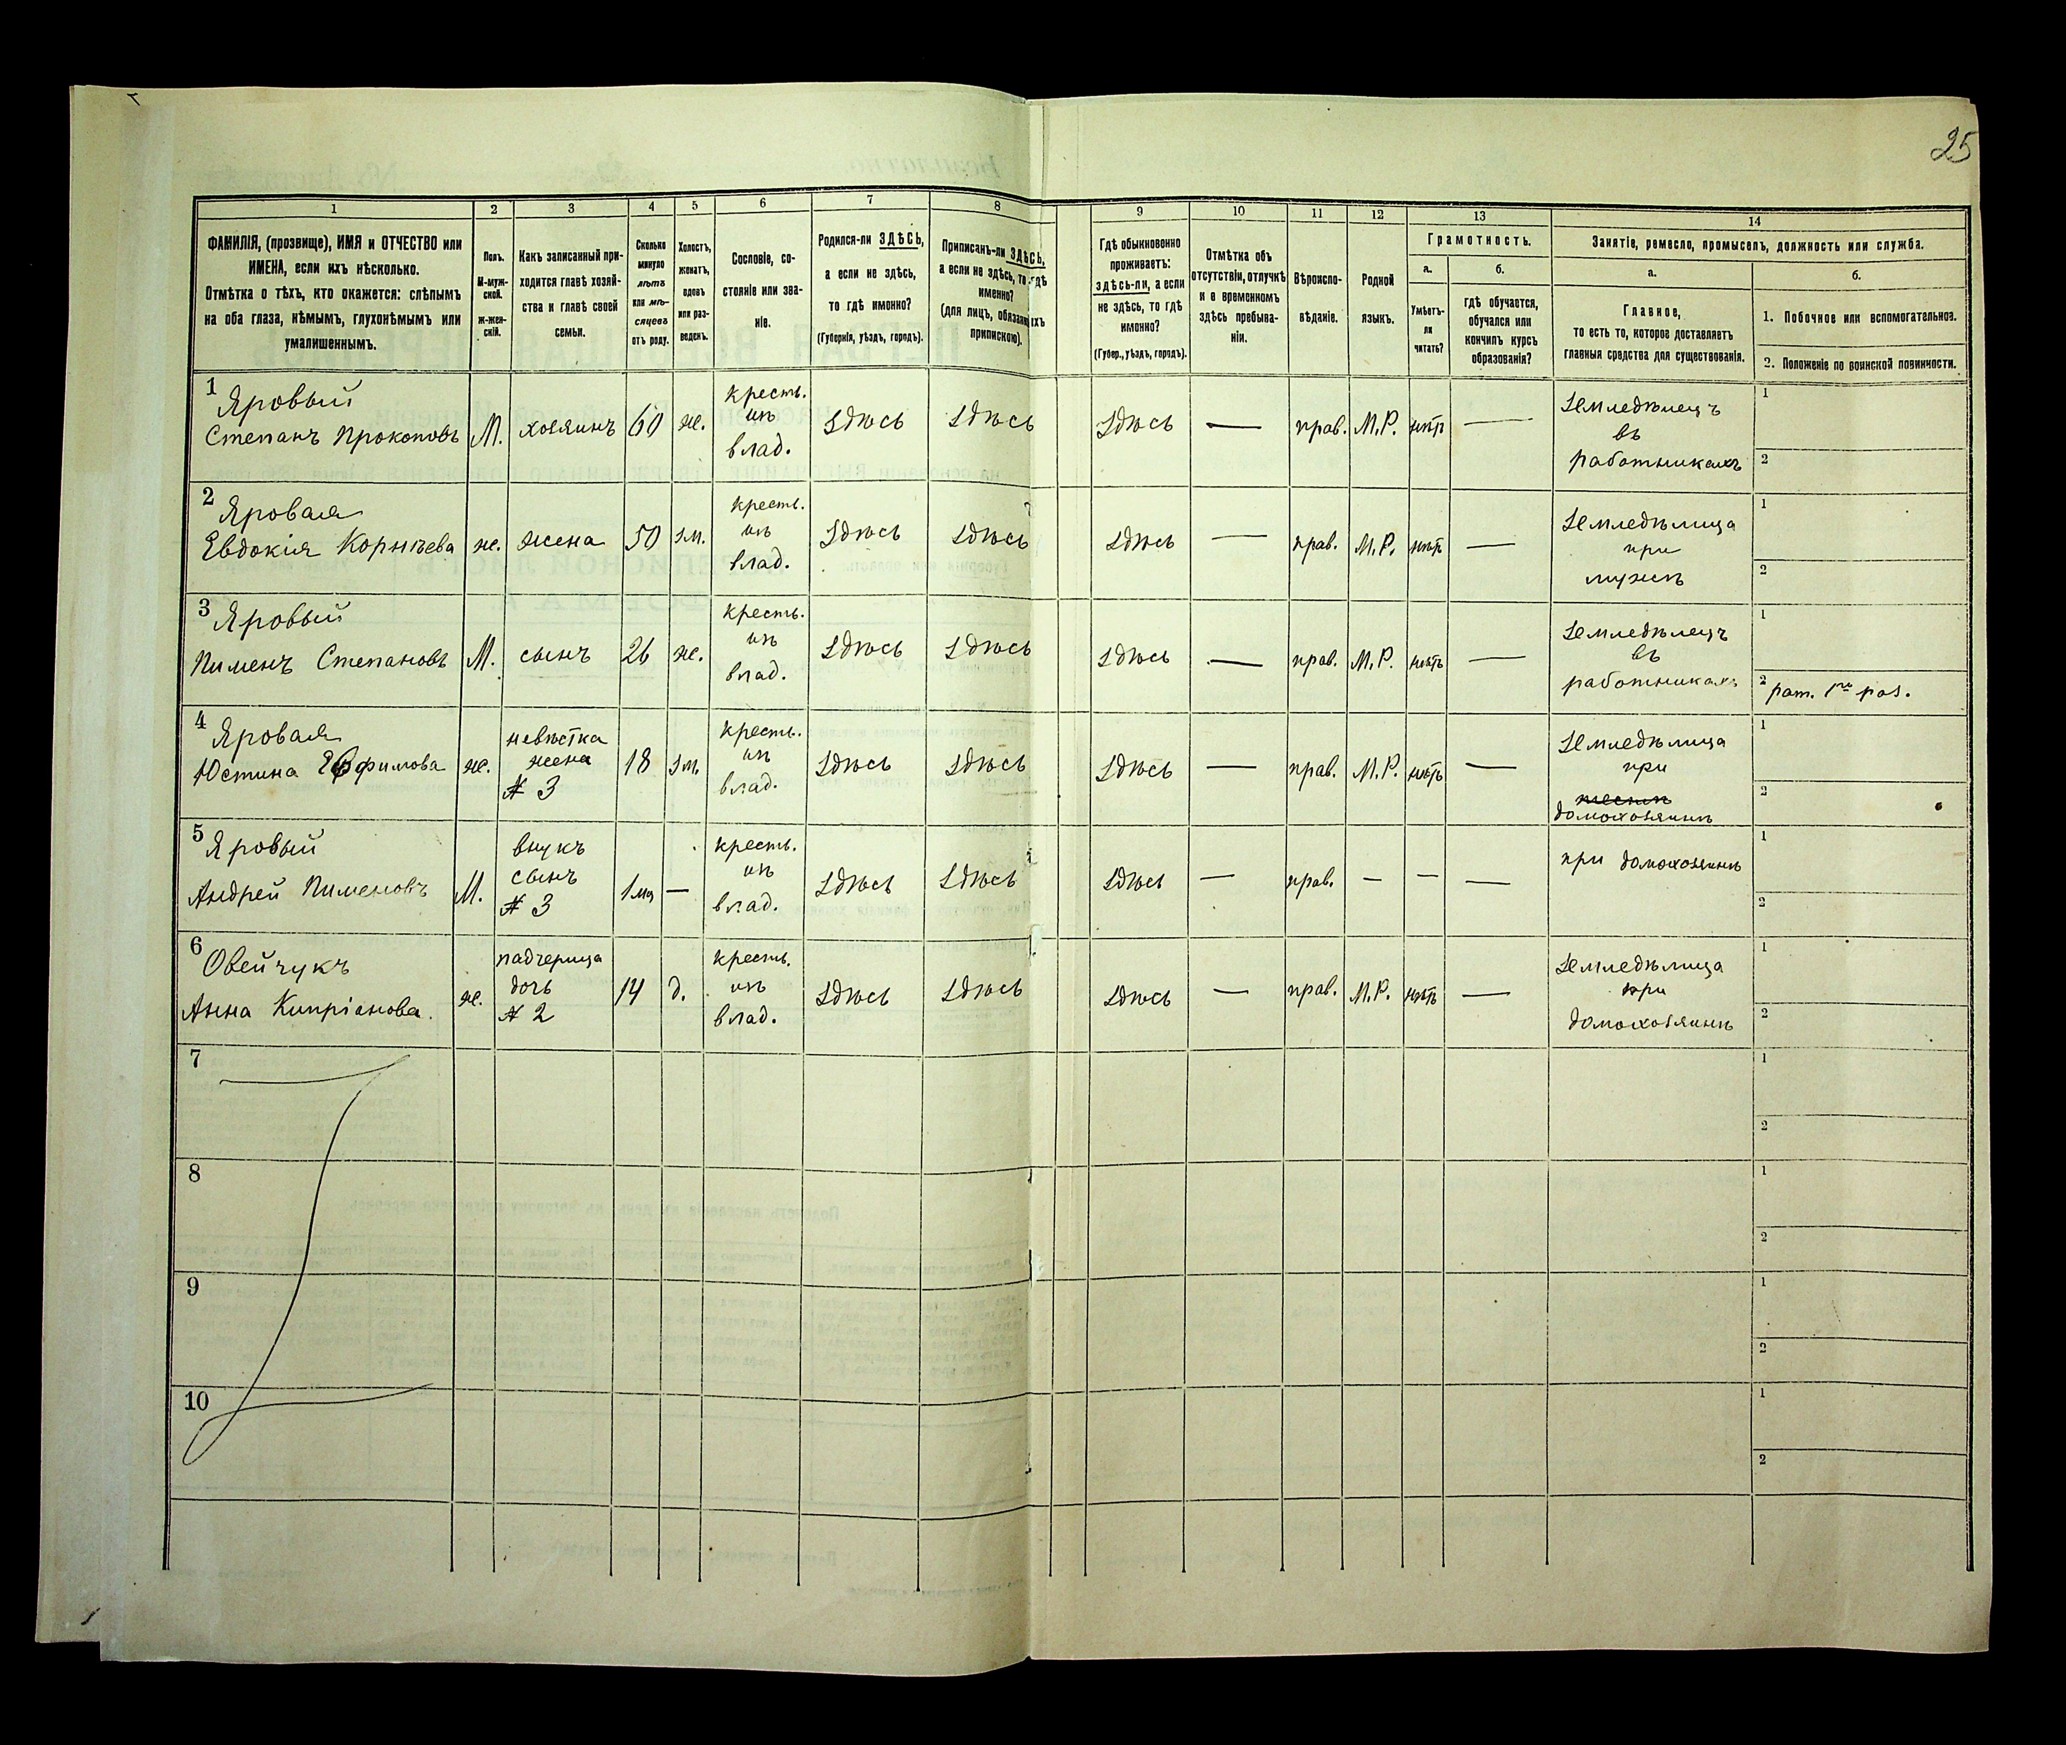 25
1
2
3
4
5
6
7
8
9
10
11
12
13
14
ФАМИЛІЯ, (прозвище), ИМЯ и ОТЧЕСТВО или
ИМЕНА, если ихъ нѣсколько.
Отмѣтка о тѣхъ, кто окажется: слѣпымъ
на оба глаза, нѣмымъ, глухонѣмымъ или
умалишеннымъ.
Полъ.
М-муж-
ской.
ж-жен-
скій.
Какъ записанный при-
ходится главѣ хозяй-
ства и главѣ своей
семьи.
Сколько
минуло
лѣтъ
или мѣ-
сяцевъ
отъ роду.
Холостъ,
женатъ,
вдовъ
или раз-
веденъ.
Сословіе, со-
стояніе или зва-
ніе.
Родился-ли ЗДѢСЬ,
а если не здѣсь,
то гдѣ именно?
(Губернія, уѣздъ, городъ).
Приписанъ-ли ЗДѢСЬ,
а если не здѣсь, то гдѣ
именно?
(для лицъ, обязанныхъ
припискою).
Гдѣ обыкновенно
проживаетъ:
здѣсь-ли, а если
не здѣсь, то гдѣ
именно?
(Губер., уѣздъ, городъ).
Отмѣтка объ
отсутствіи, отлучкѣ
и о временномъ
здѣсь пребыва-
ніи.
Вѣроиспо-
вѣданіе.
Родной
языкъ.
Грамотность.
а.
Умѣетъ-
ли
читать?
б.
гдѣ обучается,
обучался или
кончилъ курсъ
образованія?
Занятіе, ремесло, промыселъ, должность или служба.
а.
Главное,
то есть то, которое доставляетъ
главныя средства для существованія.
б.
1. Побочное или вспомогательное.
2. Положеніе по воинской повинности.
1
Яровый
Степанъ Прокоповъ
М.
хозяинъ
60
же.
кресть.
изъ
влад.
здѣсь
здѣсь
здѣсь
—
прав.
М.Р.
нѣтъ
—
Земледѣлецъ
въ
работникахъ
1
2
2
Яровая
Евдокія Корнѣева
же.
жена
50
зм.
кресть.
изъ
влад.
здѣсь
здѣсь
здѣсь
—
прав.
М.Р.
нѣтъ
—
Земледѣлица
при
мужѣ
1
2
3
Яровый
Пименъ Степановъ
М.
сынъ
26
же.
кресть.
изъ
влад.
здѣсь
здѣсь
здѣсь
—
прав.
М.Р.
нѣтъ
—
Земледѣлецъ
въ
работникахъ
1
2 рат. 1го раз.
4
Яровая
Юстина Ефимова
же.
невѣстка
жена
№ 3
18
зм.
кресть.
изъ
влад.
здѣсь
здѣсь
здѣсь
—
прав.
М.Р.
нѣтъ
—
Земледѣлица
при
домохозяинѣ
1
2
5
Яровый
Андрей Пименовъ
М.
внукъ
сынъ
№ 3
1 мѣ
—
кресть.
изъ
влад.
здѣсь
здѣсь
здѣсь
—
прав.
—
—
—
при домохозяинѣ
1
2
6
Овейчукъ
Анна Кипріанова.
же.
падчерица
дочь
№ 2
14
д.
кресть.
изъ
влад.
здѣсь
здѣсь
здѣсь
—
прав.
М.Р.
нѣтъ
—
Земледѣлица
при
домохозяинѣ
1
2
7
1
2
8
1
2
9
1
2
10
1
2